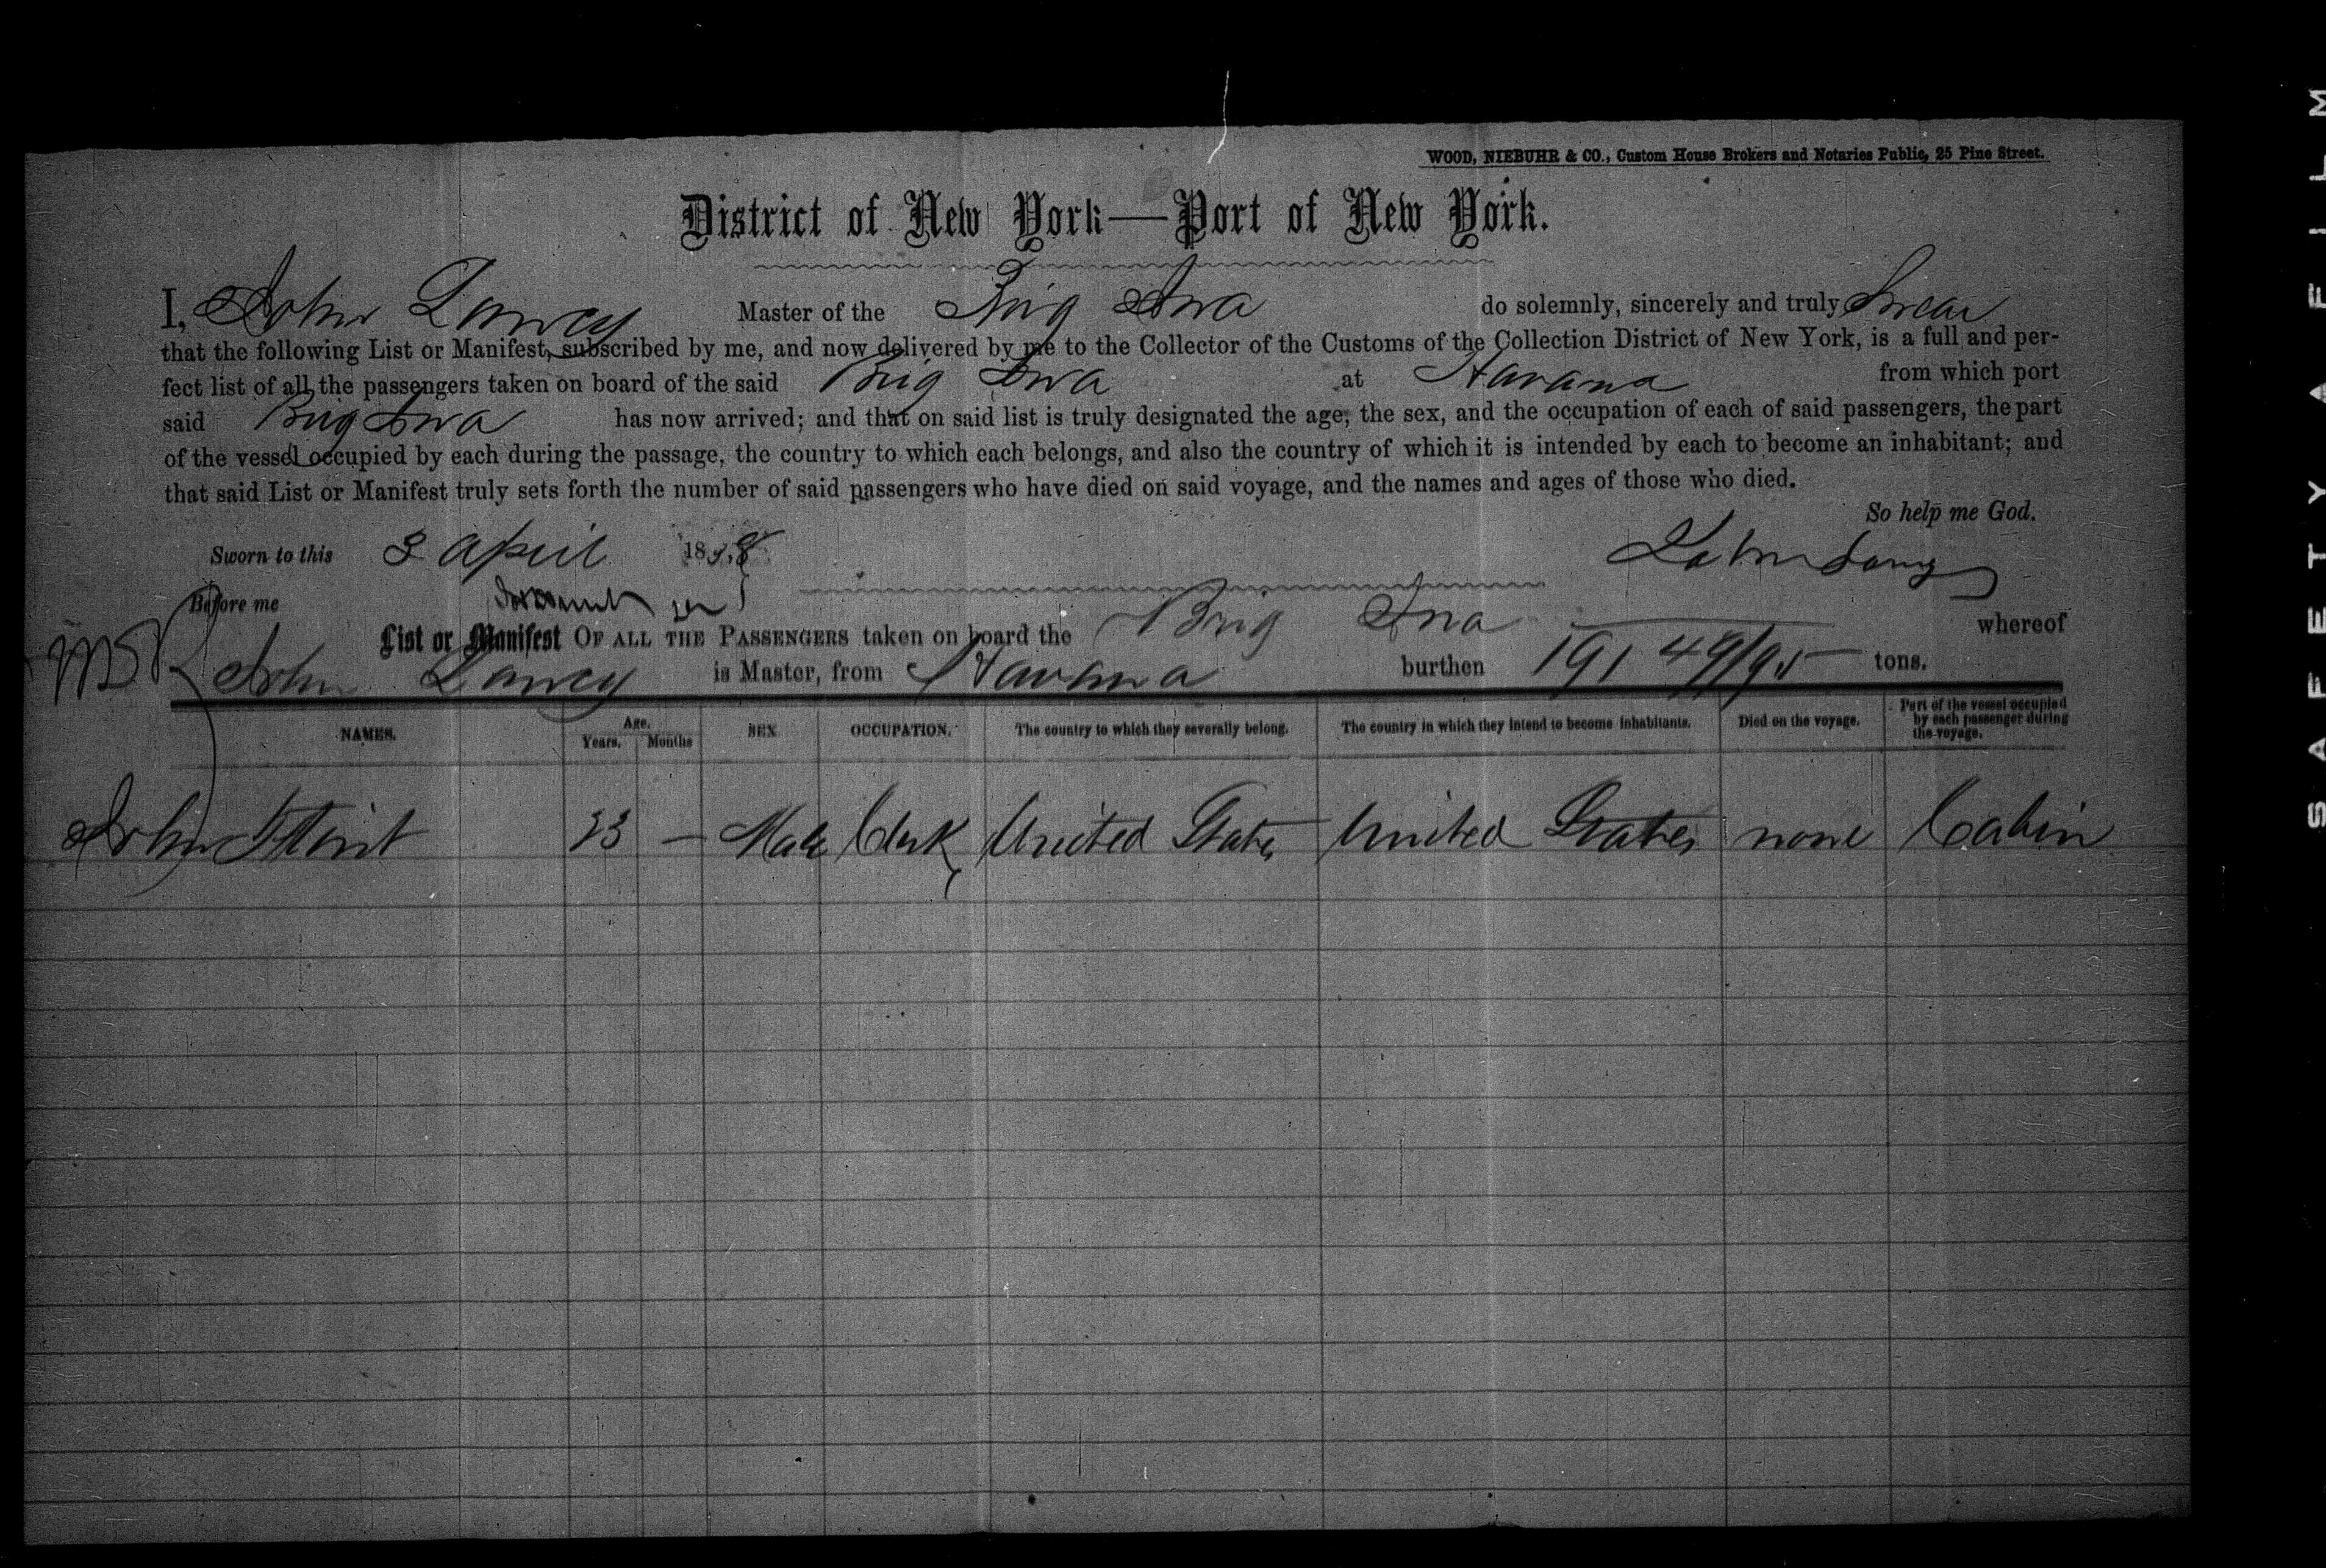 WOOD, NIEBUHR & CO., Custom House Brokers and Notaries Public, 25 Pine Street.
District of New York—Port of New York.
I, John Lancy Master of the Brig Iwa do solemnly, sincerely and truly Swear
that the following List or Manifest, subscribed by me, and now delivered by me to the Collector of the Customs of the Collection District of New York, is a full and per-
fect list of all the passengers taken on board of the said Brig Iwa at Havana from which port
said Brig Iwa has now arrived; and that on said list is truly designated the age, the sex, and the occupation of each of said passengers, the part
of the vessel occupied by each during the passage, the country to which each belongs, and also the country of which it is intended by each to become an inhabitant; and
that said List or Manifest truly sets forth the number of said passengers who have died on said voyage, and the names and ages of those who died.
So help me God.
Sworn to this 3 April 18 8 John Lancy
Before me
List or Manifest OF ALL THE PASSENGERS taken on board the Brig Iwa whereof
John Lancy is Master, from Havana burthen 191 49/95 tons.
NAMES. Age. Years. Months SEX OCCUPATION. The country to which they severally belong. The country in which they intend to become inhabitants. Died on the voyage. Part of the vessel occupied by each passenger during the voyage.
John Flint 23 — Male Clerk United States United States none Cabin
SAFETY FILM